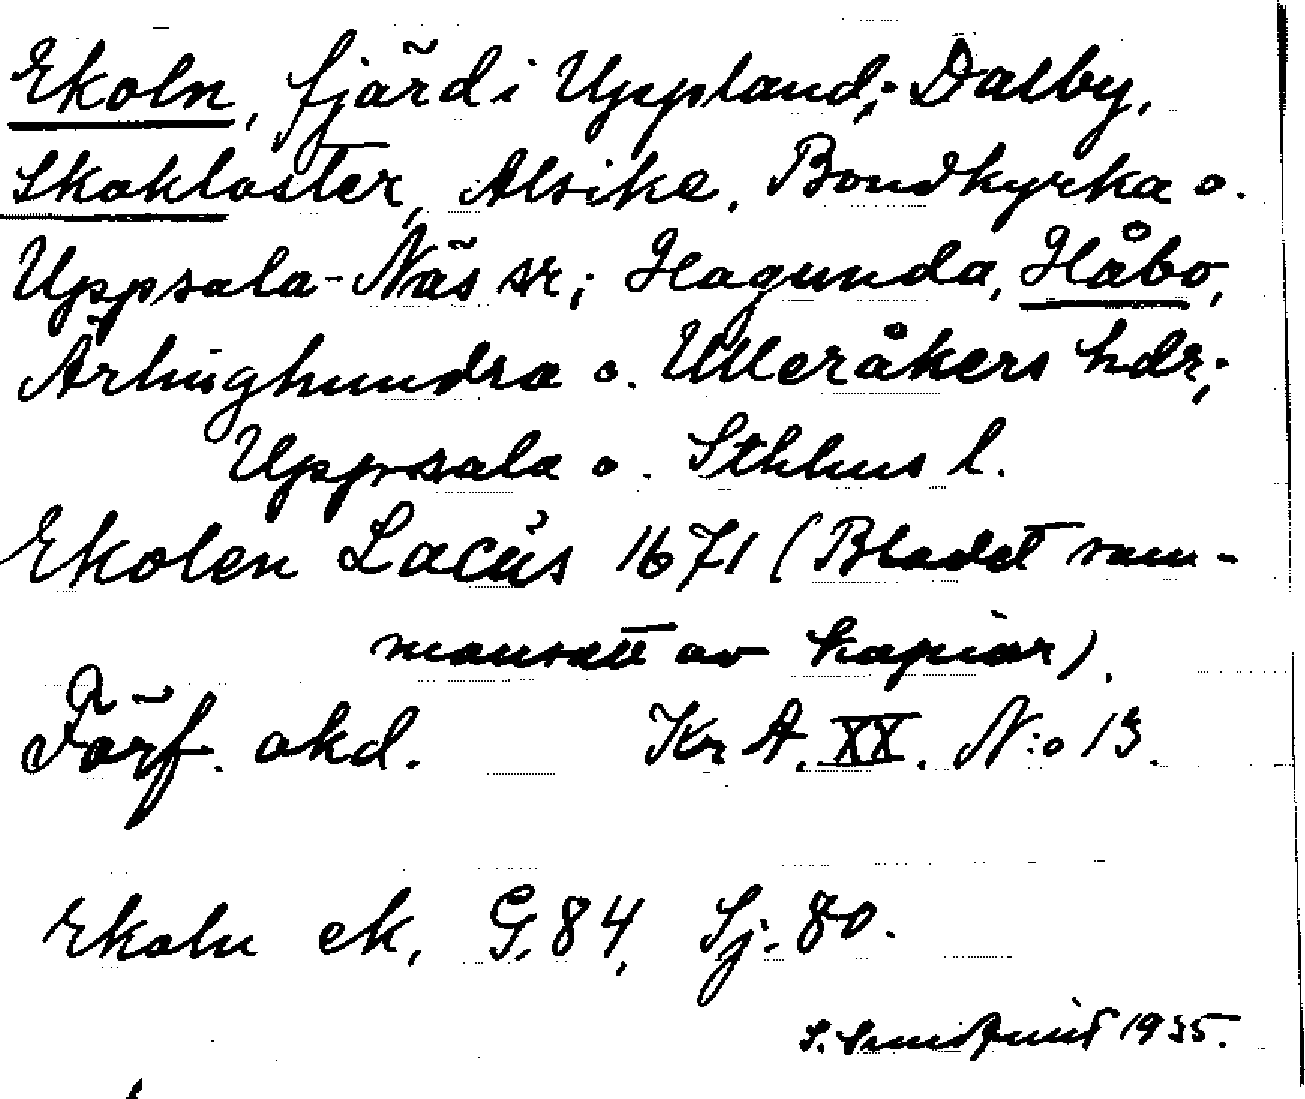 Ekoln, fjärd i Uppland; Dalby,
Skokloster, Alsike, Bondkyrka o.
Uppsala-Näs sr; Hagunda, Håbo,
Ärlinghundra o. Ulleråkers hdr;
Uppsala o. Sthlms l.
Ekolen Lacus 1671 (Bladet sam-
mansatt av kopior).
Förf. okd. Kr A. XX. N:o 13.
Ekoln ek, G. 84, Sj. 80.
S. Sundqvist 1935.